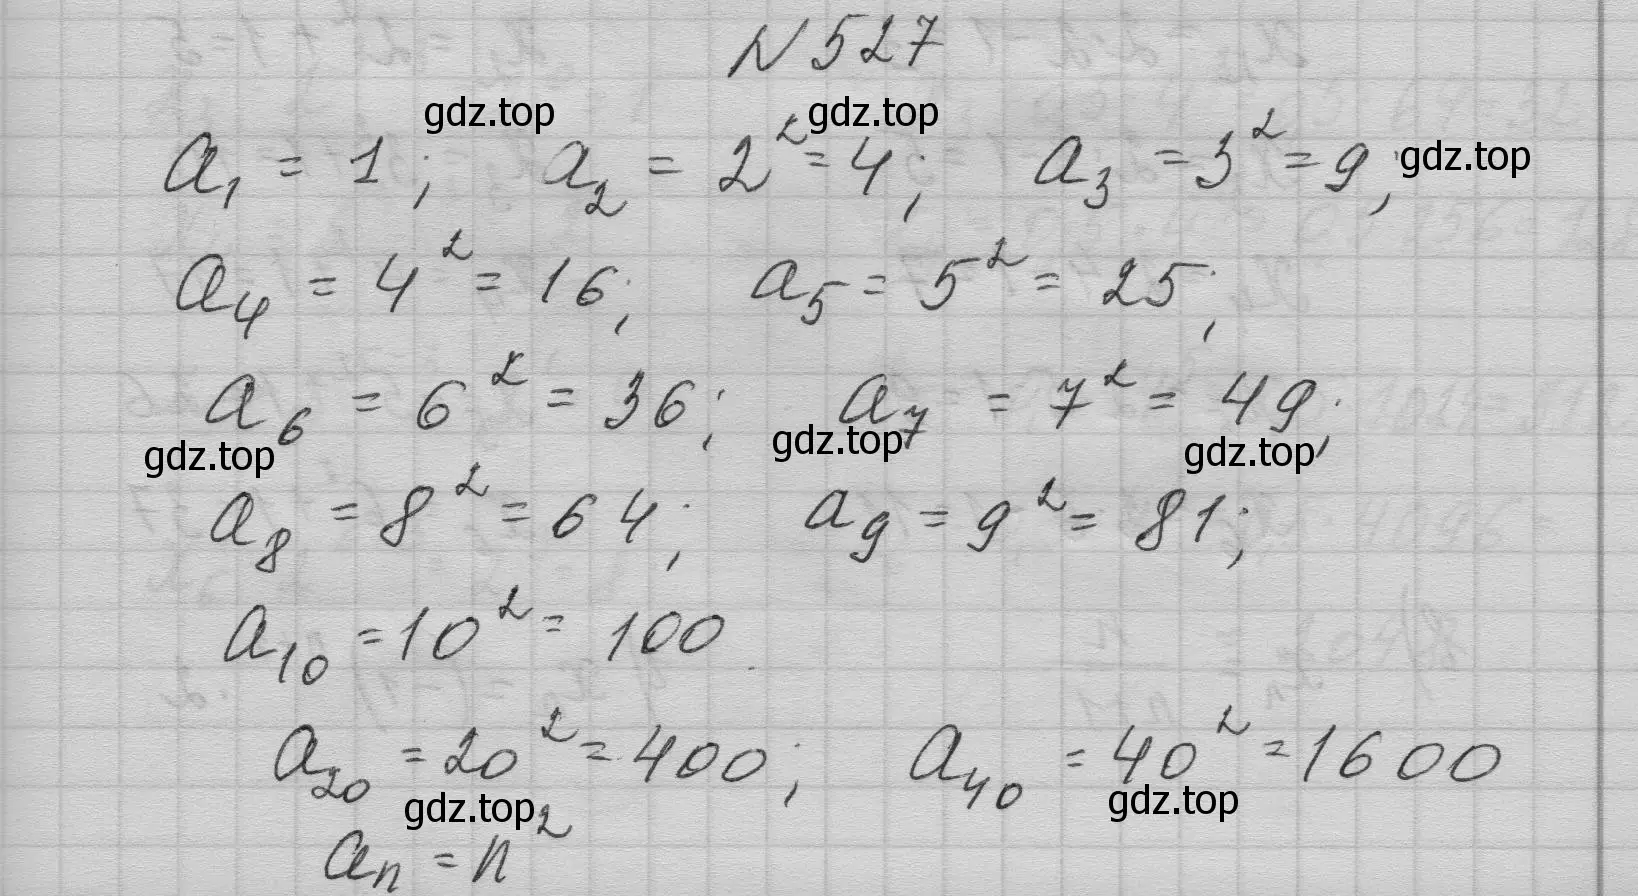 N 527
gdz.top gdz.top
a₁ = 1; a₂ = 2² = 4; a₃ = 3² = 9; gdz.top
a₄ = 4² = 16; a₅ = 5² = 25;
a₆ = 6² = 36; a₇ = 7² = 49;
gdz.top gdz.top gdz.top
a₈ = 8² = 64; a₉ = 9² = 81;
a₁₀ = 10² = 100
a₂₀ = 20² = 400; a₄₀ = 40² = 1600
gdz.top gdz.top
aₙ = n²